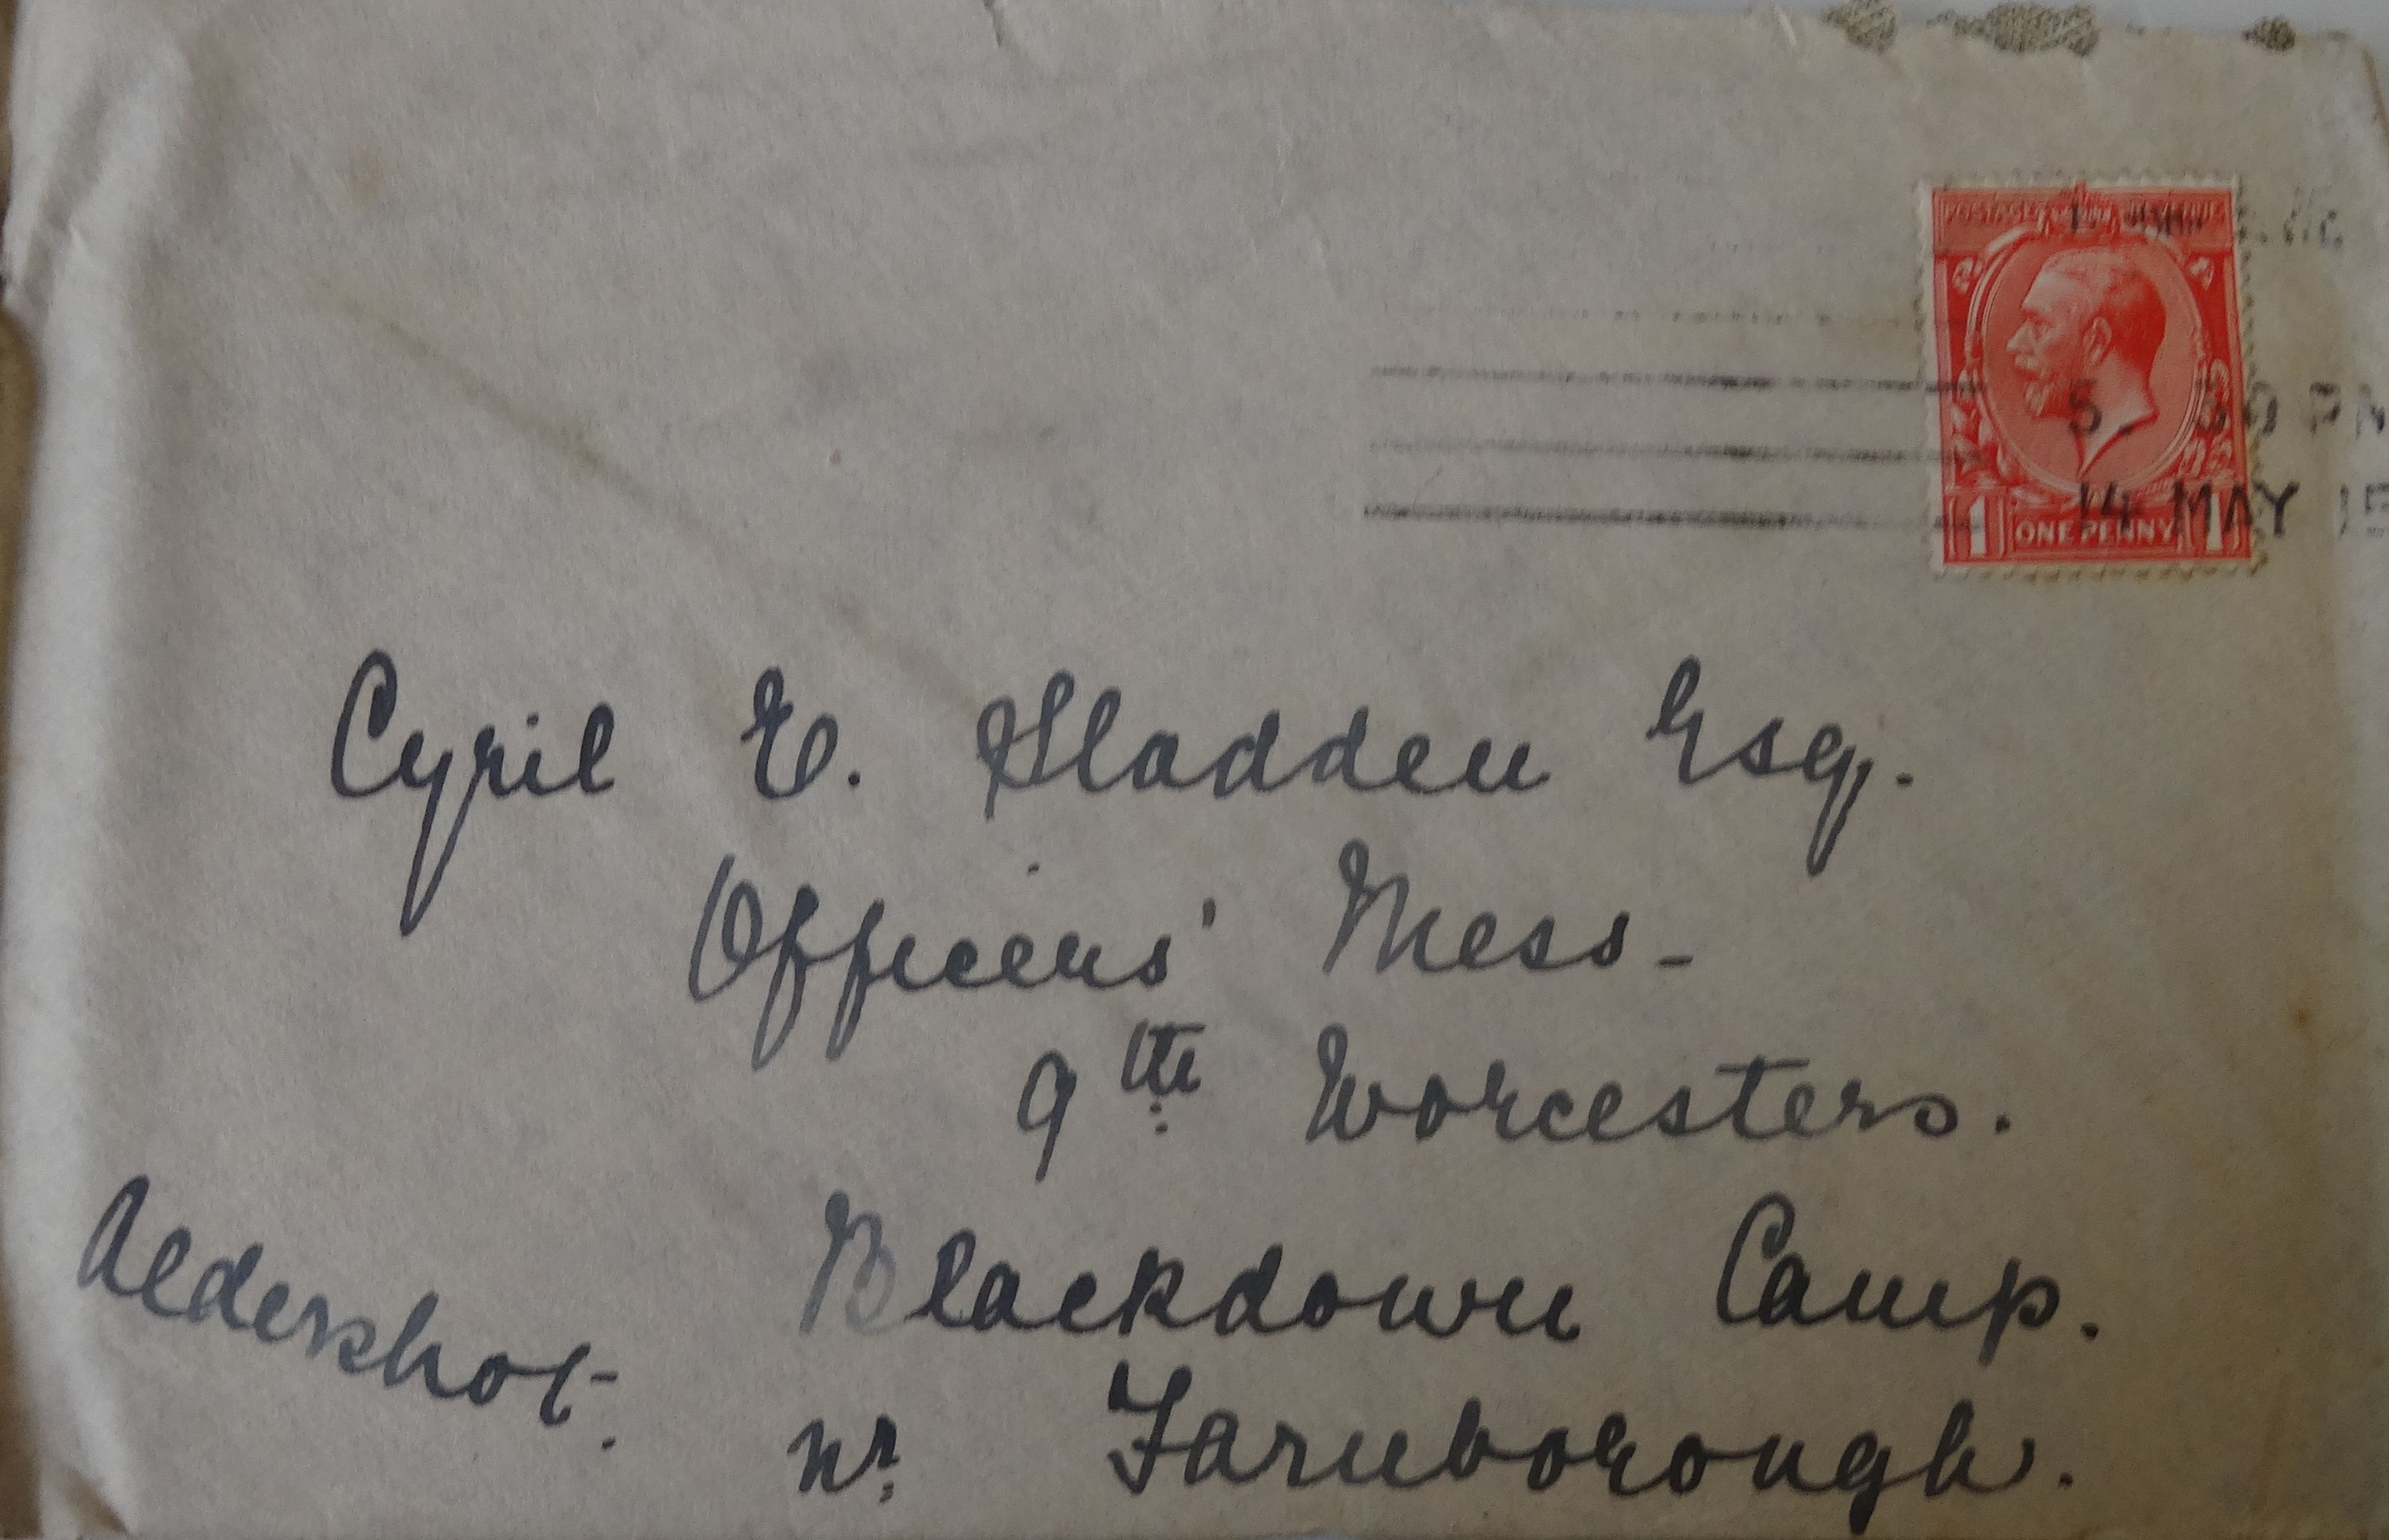 5. 30 PM
14 MAY 15
1 ONE PENNY 1
Cyril E. Sladden Esq.
Officers' Mess -
9th Worcesters.
Blackdown Camp.
nr Farnborough.
Aldershot.